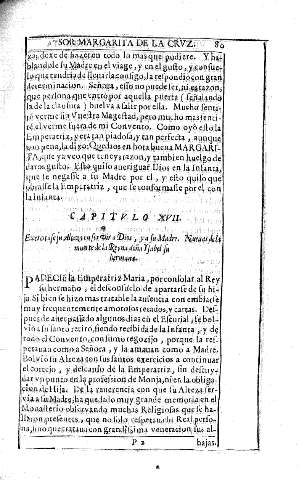 A SOR MARGARITA DE LA CRVZ. 80
zon dexe de hazer en todo lo mas que pudiere. Y ha-
blandole su Madre en el viage, y en el gusto, y consue-
lo que tendria de llevarla consigo, la respondio con gran
determinacion. Señora, esso no puede ser, ni es razon,
que persona que entrò por aquella puerta (señalando
la de la clausura) buelva a salir por ella. Mucho senti-
rè verme sin Vuestra Magestad, pero mucho mas senti-
rè el verme fuera de mi Convento. Como oyò esto la
Emperatriz, y era tan piadosa, y tan perfecta, aunque
con pena, la dixo: Quedaos en hora buena MARGARI-
TA, que ya veo que teneys razon, y tambien huelgo de
daros gusto. Esto quiso averiguar Dios en la Infanta,
que se negasse a su Madre por el, y esto quiso que
obrasse la Emperatriz, que se conformasse por el con
la Infanta.
CAPITVLO XVII.
Exercitase su Alteza en servir a Dios, y a su Madre. Nueva de la
muerte de la Reyna doña Isabel su
hermana.
PADECIÒ la Emperatriz Maria, por consolar al Rey
su hermano, el desconsuelo de apartarse de su hi-
ja. Si bien se hizo mas tratable la ausencia con embiarse
muy frequentemente amorosos recados, y cartas. Des-
pues de aver passado algunos dias en el Escorial, se bol-
viò a su santo retiro, siendo recibida de la Infanta, y de
todo el Convento, con sumo regozijo, porque la res-
petavan como a Señora, y la amavan como a Madre.
Bolviò su Alteza con sus santos exercicios a continuar
el cortejo, y descanso de la Emperatriz, sin descuy-
dar vn punto en la profession de Monja, ni en la obliga-
cion de Hija. De la reverencia con que su Alteza ser-
via a su Madre, ha quedado muy grande memoria en el
Monasterio observando muchas Religiosas que se ha-
llaron presentes, que no solo respetava su Real perso-
na, sino que tratava con grandissima veneracion sus al-
P 2 hajas.